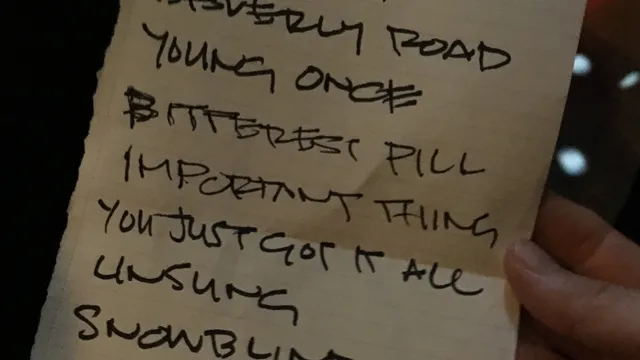 BEVERLY ROAD
YOUNG ONCE
BITTEREST PILL
IMPORTANT THING
YOU JUST GOT IT ALL
UNSUNG
SNOWBLIN